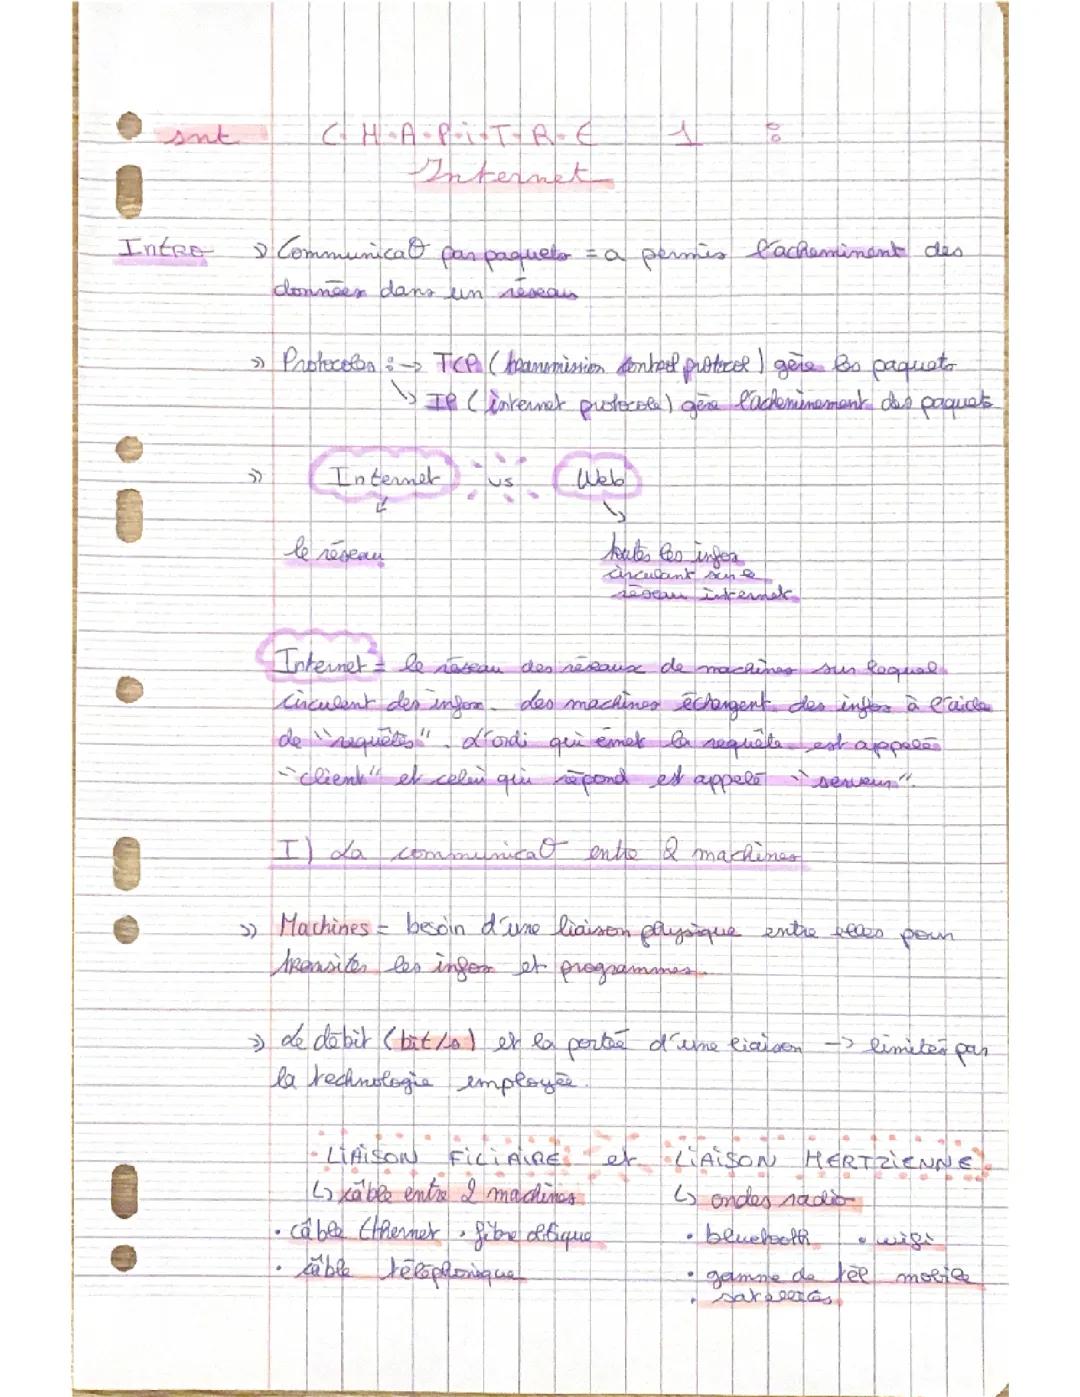 snt C-H-A-P-i-T-R-E 1 :
Internet
Intro » Communicat° par paquets = a permis l'acheminent des
données dans un réseau
» Protocoles : → TCP (transmission control protocol) gère les paquets
↳ IP (internet protocole) gère l'acheminement des paquets
» Internet vs Web
le réseau toutes les infos
circulant sur le
réseau internet.
Internet = le réseau des réseaux de machines sur lequel
circulent des infos. des machines échangent des infos à l'aide
de "requêtes". L'ordi qui émet la requête est appelé
"client" et celui qui répond est appelé "serveur".
I) La communicat° entre 2 machines
» Machines = besoin d'une liaison physique entre elles pour
transiter les infos et programmes.
» Le débit (bit/s) et la portée d'une liaison → limités par
la technologie employée.
LIAISON FILIAIRE et LIAISON HERTZIENNE
↳ câble entre 2 machines ↳ ondes radio
• câble Ethernet • fibre optique • bluetooth • wifi
• câble téléphonique • gamme de tél mobile
• satellites